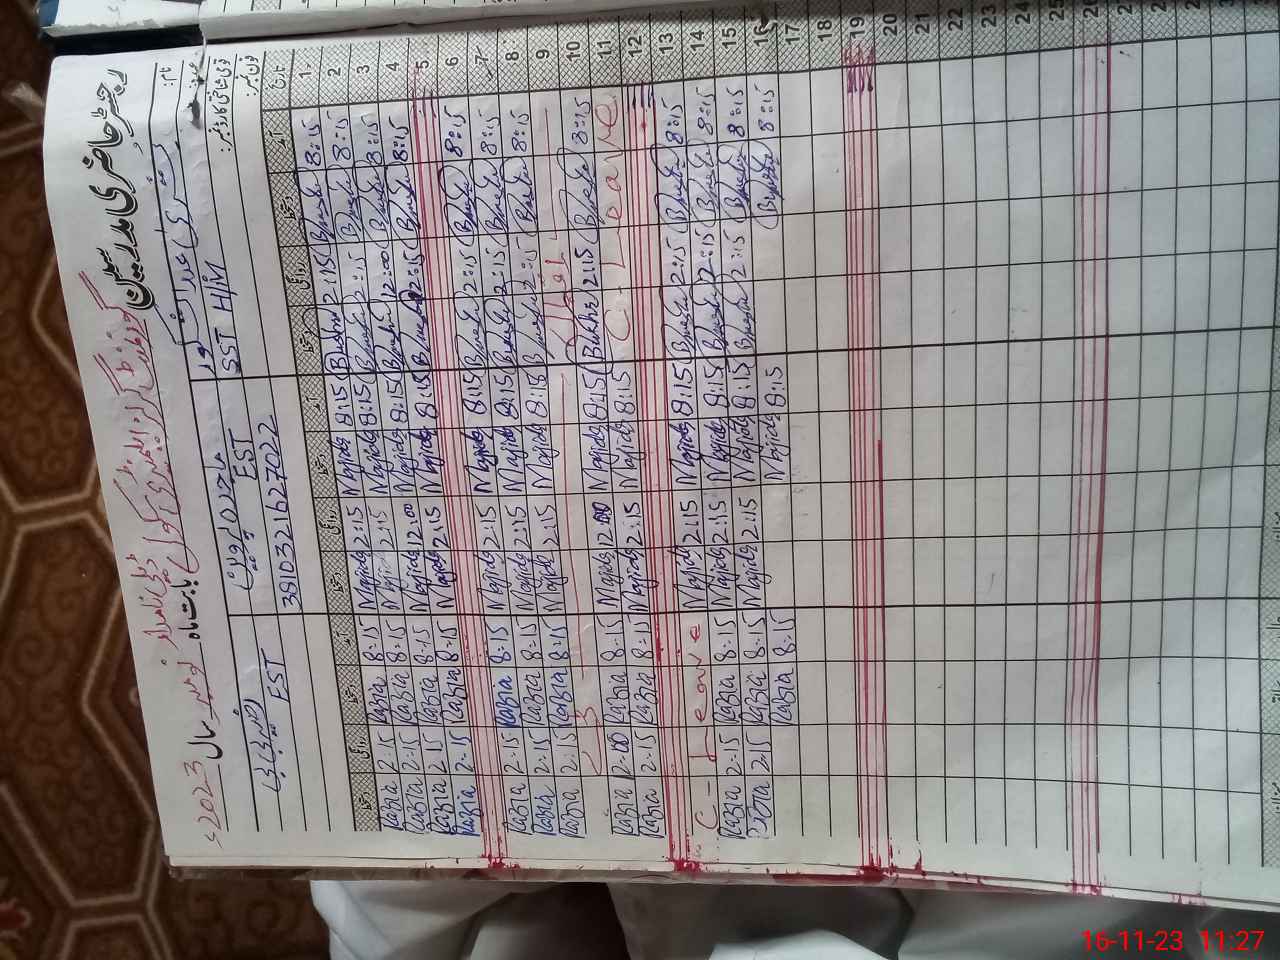 رجسٹر حاضری مدرسین گورنمنٹ گرلز ایلیمنٹری سکول
بابت ماہ نومبر سال 2023ء
نام: بشریٰ عبدالشکور
ماجدہ پروین
عہدہ: SST H/M
EST
EST
قومی شناختی کارڈ نمبر:
3810321627022
فون نمبر:
تاریخ آمد دستخط روانگی دستخط آمد دستخط روانگی دستخط آمد دستخط روانگی دستخط
Razia 2:15 Razia 8:15 Majida 2:15 Majida 8:15 Bushra 2:15 Bushra 8:15 1
Razia 2:15 Razia 8:15 Majida 2:15 Majida 8:15 Bushra 2:15 Bushra 8:15 2
Razia 2:15 Razia 8:15 Majida 12:00 Majida 8:15 Bushra 12:00 Bushra 8:15 3
Razia 2:15 Razia 8:15 Majida 2:15 Majida 8:15 Bushra 2:15 Bushra 8:15 4
5
Razia 2:15 Razia 8:15 Majida 2:15 Majida 8:15 Bushra 2:15 Bushra 8:15 6
Razia 2:15 Razia 8:15 Majida 2:15 Majida 8:15 Bushra 2:15 Bushra 8:15 7
Razia 2:15 Razia 8:15 Majida 2:15 Majida 8:15 Bushra 2:15 Bushra 8:15 8
9
Razia 12:00 Razia 8:15 Majida 12:00 Majida 8:15 Bushra 2:15 Bushra 8:15 10
Razia 2:15 Razia 8:15 Majida 2:15 Majida 8:15 C-Leave 11
12
C-Leave Majida 2:15 Majida 8:15 Bushra 2:15 Bushra 8:15 13
Razia 2:15 Razia 8:15 Majida 2:15 Majida 8:15 Bushra 2:15 Bushra 8:15 14
Razia 2:15 Razia 8:15 Majida 2:15 Majida 8:15 Bushra 2:15 Bushra 8:15 15
Razia 8:15 Majida 8:15 Bushra 8:15 16
17
18
19
20
21
22
23
24
25
26
16-11-23 11:27